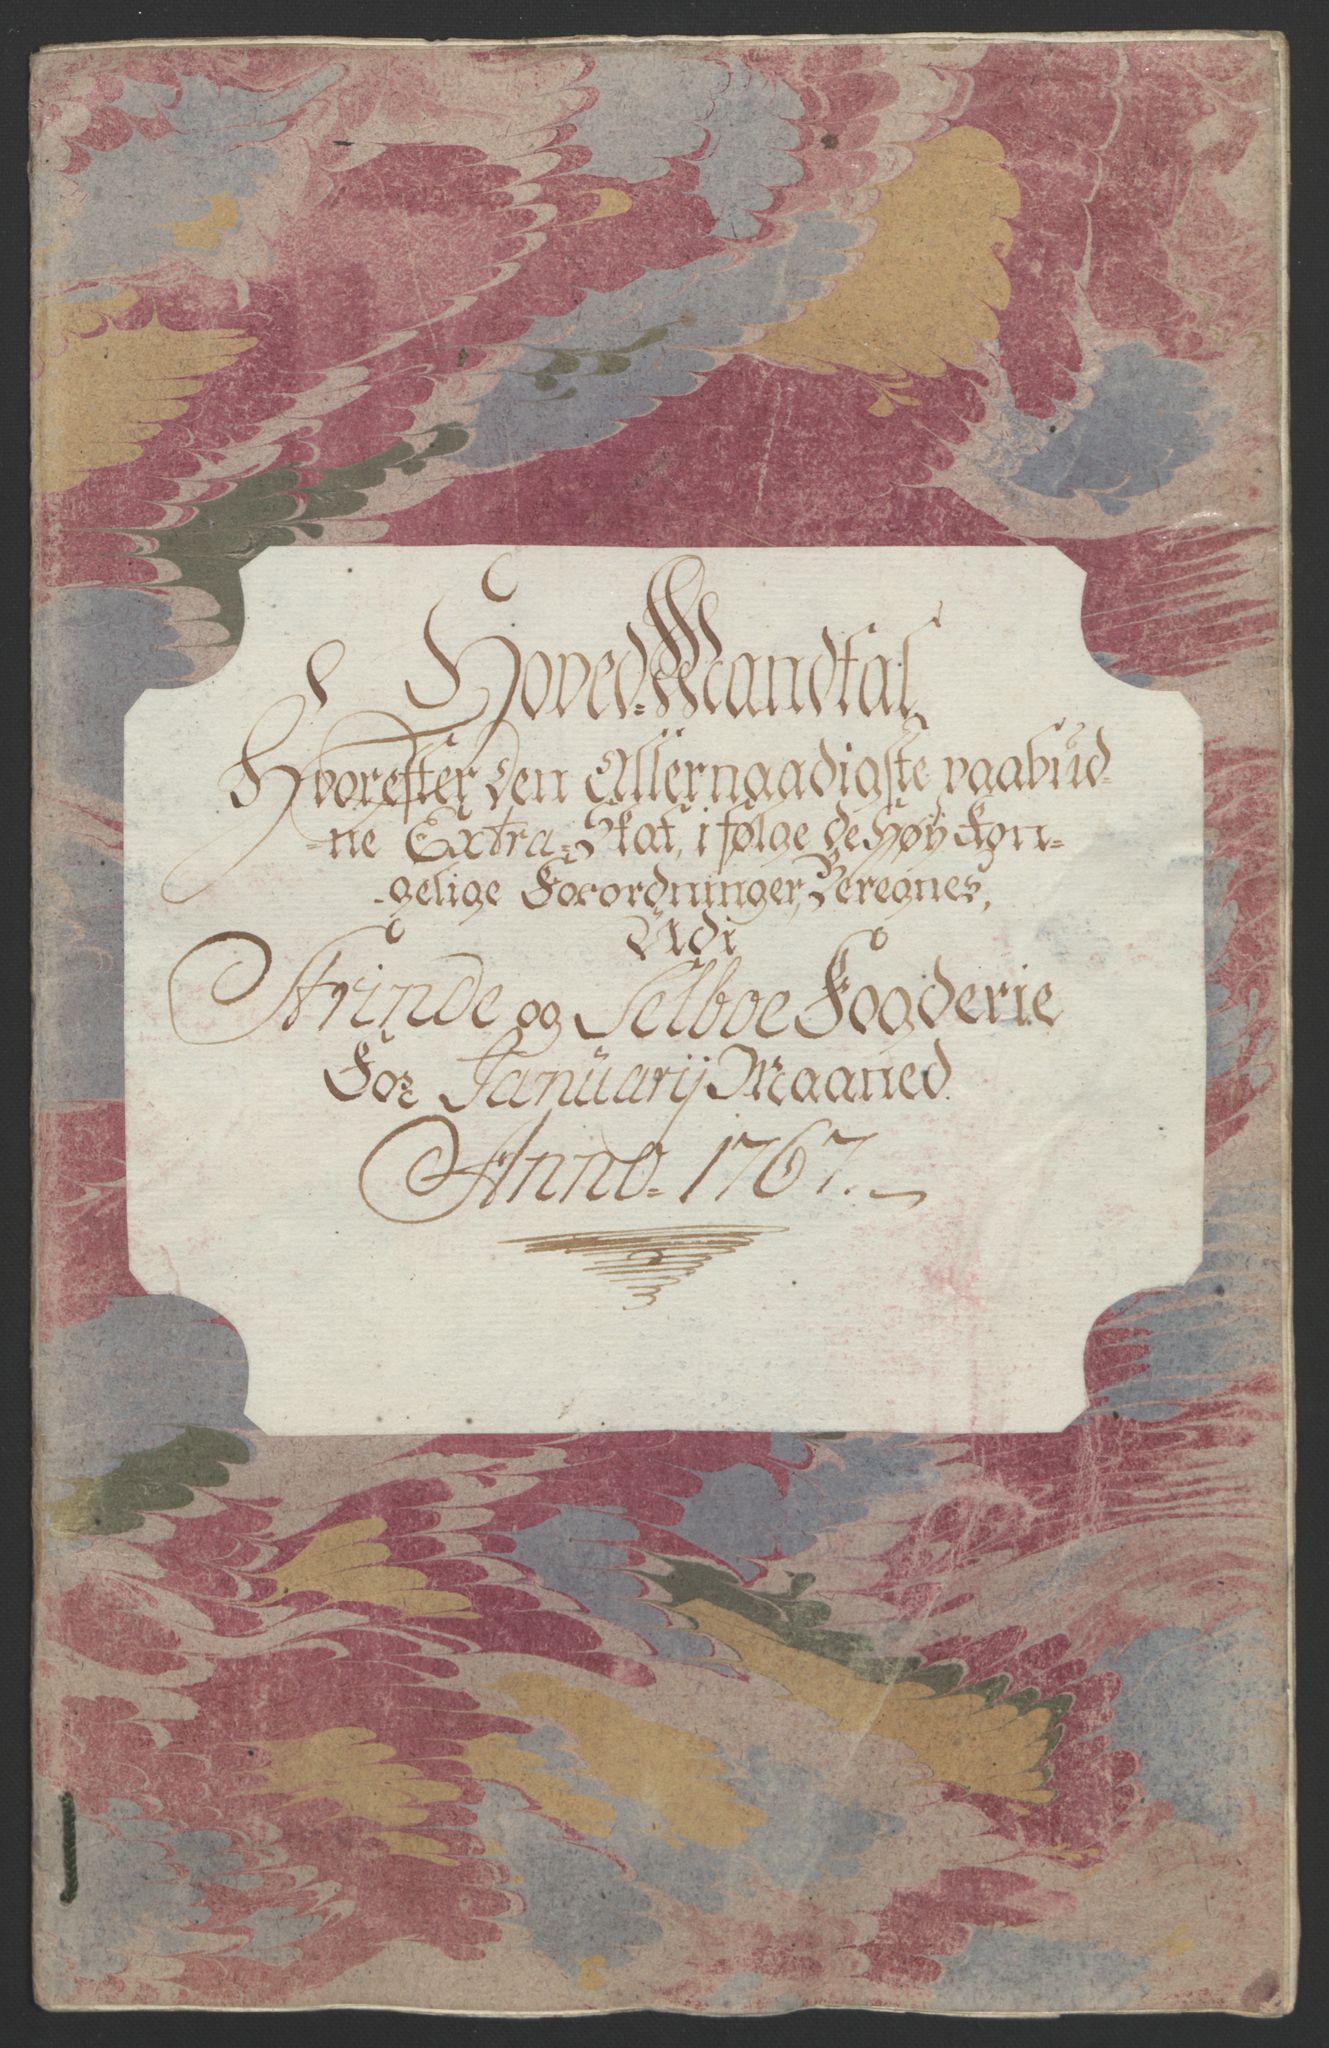 Hoved-Mandtal
Hvorefter den Allernaadigste paabud-
-ne Extra-Skat, i følge de Høy Kon-
-gelige Forordninger, Beregnes,
Udi
Strinde og Selboe Fogderie
For Januarij Maaned.
Anno. 1767.